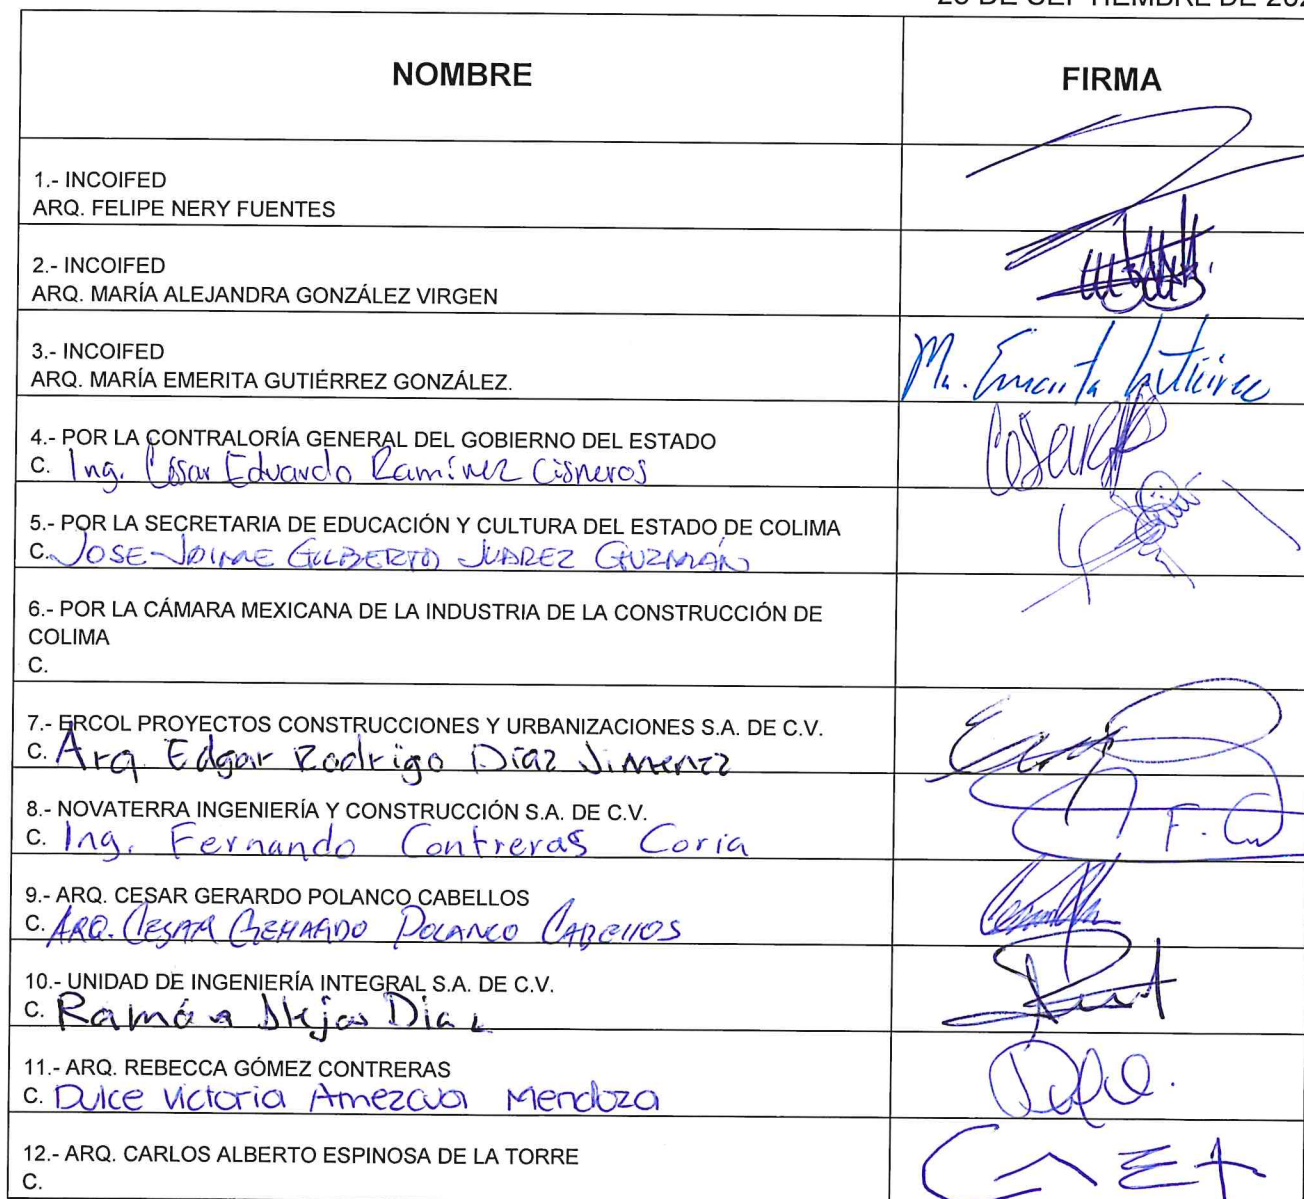 DE SEPTIEMBRE DE
NOMBRE
FIRMA
1.- INCOIFED
ARQ. FELIPE NERY FUENTES
2.- INCOIFED
ARQ. MARÍA ALEJANDRA GONZÁLEZ VIRGEN
3.- INCOIFED
ARQ. MARÍA EMERITA GUTIÉRREZ GONZÁLEZ.
Ma. Emerita Gutiérrez
4.- POR LA CONTRALORÍA GENERAL DEL GOBIERNO DEL ESTADO
C. Ing. César Eduardo Ramírez Cisneros
5.- POR LA SECRETARIA DE EDUCACIÓN Y CULTURA DEL ESTADO DE COLIMA
C. JOSE JAIME GILBERTO JUAREZ GUZMÁN
6.- POR LA CÁMARA MEXICANA DE LA INDUSTRIA DE LA CONSTRUCCIÓN DE
COLIMA
C.
7.- ERCOL PROYECTOS CONSTRUCCIONES Y URBANIZACIONES S.A. DE C.V.
C. Arq Edgar Rodrigo Díaz Jimenez
8.- NOVATERRA INGENIERÍA Y CONSTRUCCIÓN S.A. DE C.V.
C. Ing. Fernando Contreras Coria
9.- ARQ. CESAR GERARDO POLANCO CABELLOS
C. ARQ. CESAR GERARDO POLANCO CABELLOS
10.- UNIDAD DE INGENIERÍA INTEGRAL S.A. DE C.V.
C. Ramón Díaz
11.- ARQ. REBECCA GÓMEZ CONTRERAS
C. Dulce Victoria Amezcua Mendoza
12.- ARQ. CARLOS ALBERTO ESPINOSA DE LA TORRE
C.